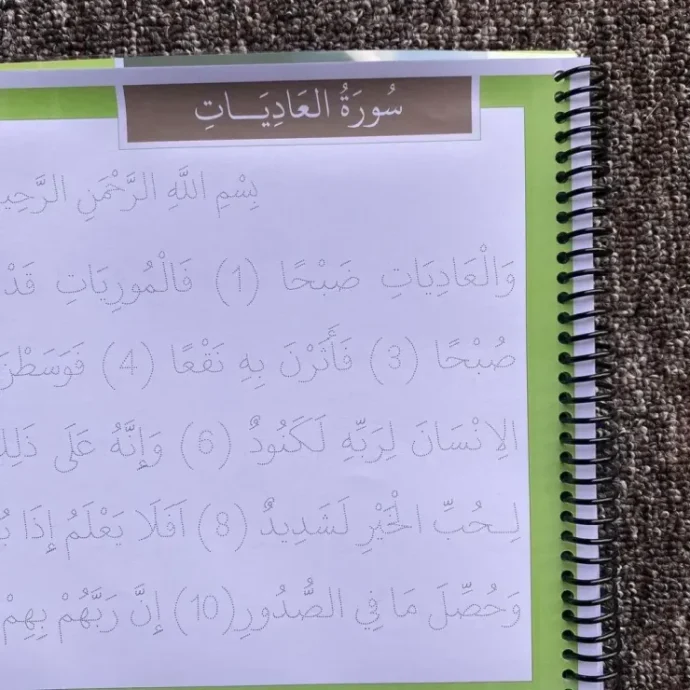 سُورَةُ العَادِيَـــاتِ
بِسْمِ اللَّهِ الرَّحْمَنِ
وَالْعَادِيَاتِ ضَبْحًا (1) فَالْمُورِيَاتِ قَدْ
صُبْحًا (3) فَأَثَرْنَ بِهِ نَقْعًا (4) فَوَسَطْنَ
الِانْسَانَ لِرَبِّهِ لَكَنُودٌ (6) وَإِنَّهُ عَلَى
لِـحُبِّ الْخَيْرِ لَشَدِيدٌ (8) اَفَلَا يَعْلَمُ إِذَا
وَحُصِّلَ مَا فِي الصُّدُورِ (10) إِنَّ رَبَّهُمْ بِهِمْ